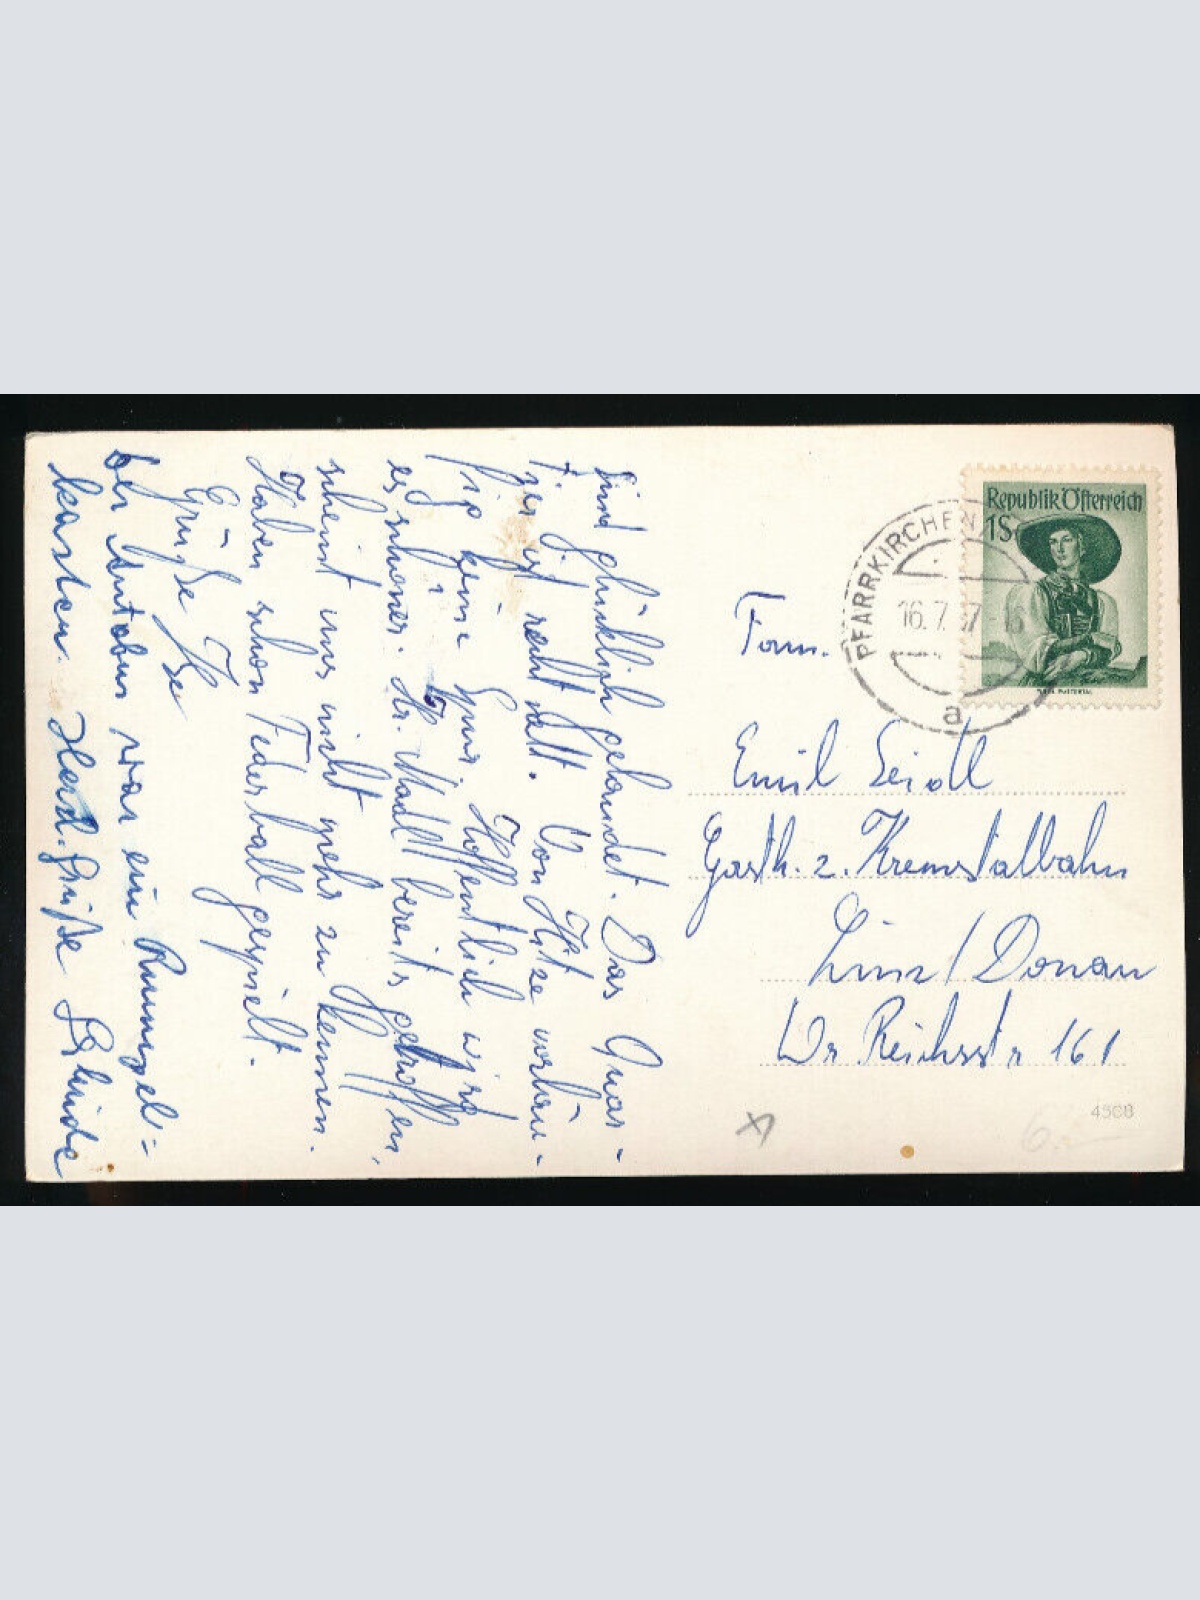 Sind glücklich gelandet. Das Quar-
tier ist recht nett. Von Hitze vorläu-
fig keine Spur. Hoffentlich wird
es schöner. Hr. Madl bereits getroffen,
scheint uns nicht mehr zu kennen.
Haben schon Federball gespielt.
Grüße
Der Autobus war ein Rumpel=
kasten. Herzl. Grüße
Republik Österreich
1S
PFARRKIRCHEN
16.7. 57-16
a
Fam.
Emil Seidl
Gasth. z. Kremstalbahn
Linz/Donau
Wr Reichsstr 161
4508